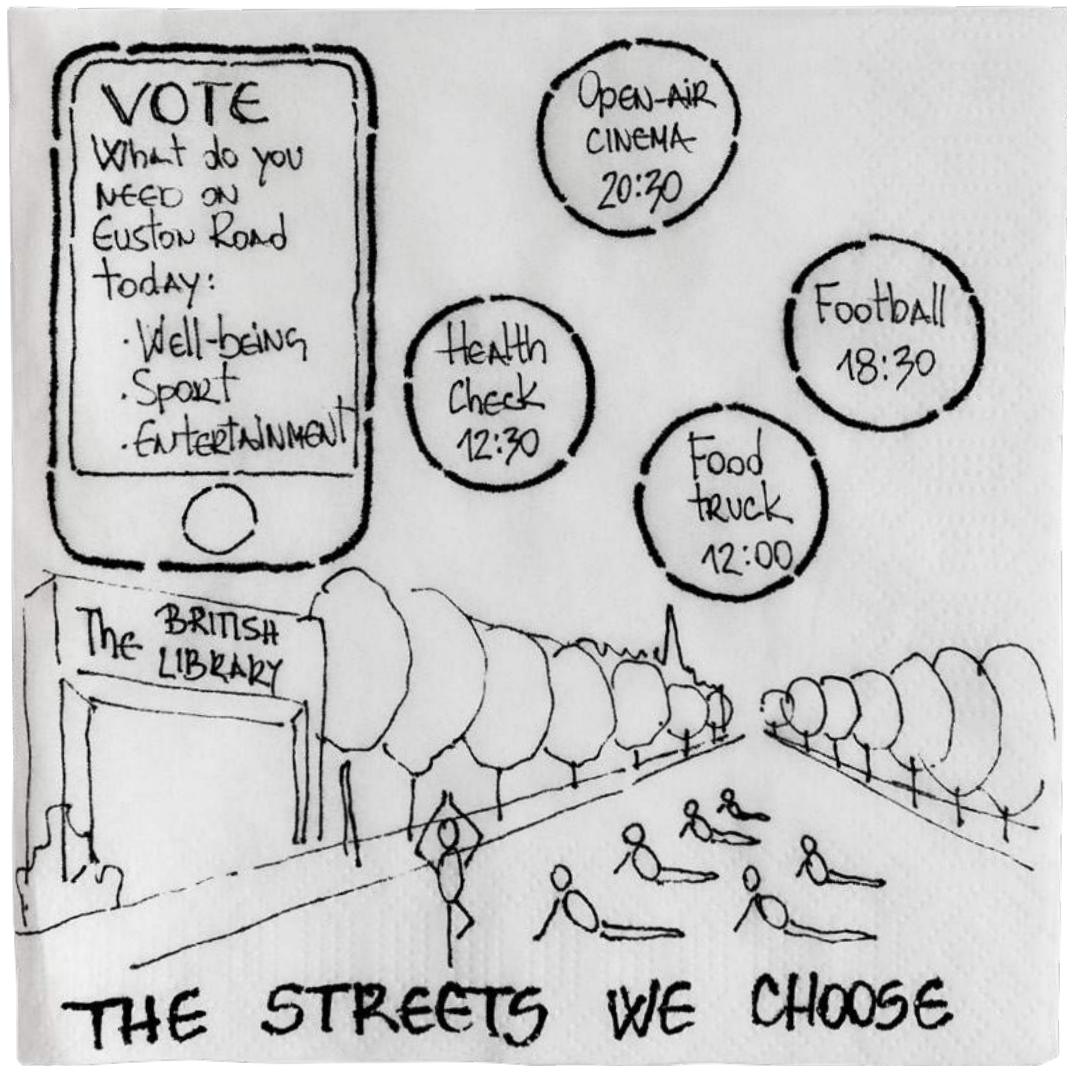 VOTE
What do you
NEED ON
Euston Road
today:
· Well-being
· Sport
· ENTERTAINMENT
OPEN-AiR
CINEMA
20:30
Football
18:30
Health
Check
12:30
Food
truck
12:00
The BRITISH
LIBRARY
THE STREETS WE CHOOSE